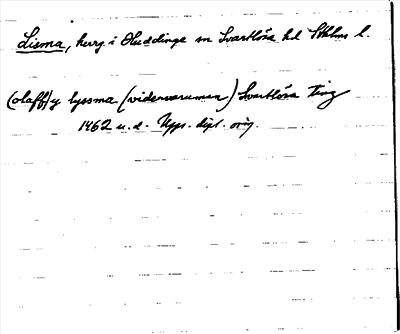 Lisma, herrg. i Huddinge sn Svartlösa hd Sthlms l.
(olaff) y lyssma (vidervaruman) Svartlösa ting
1462 u.d. Upps. dipl. orig.